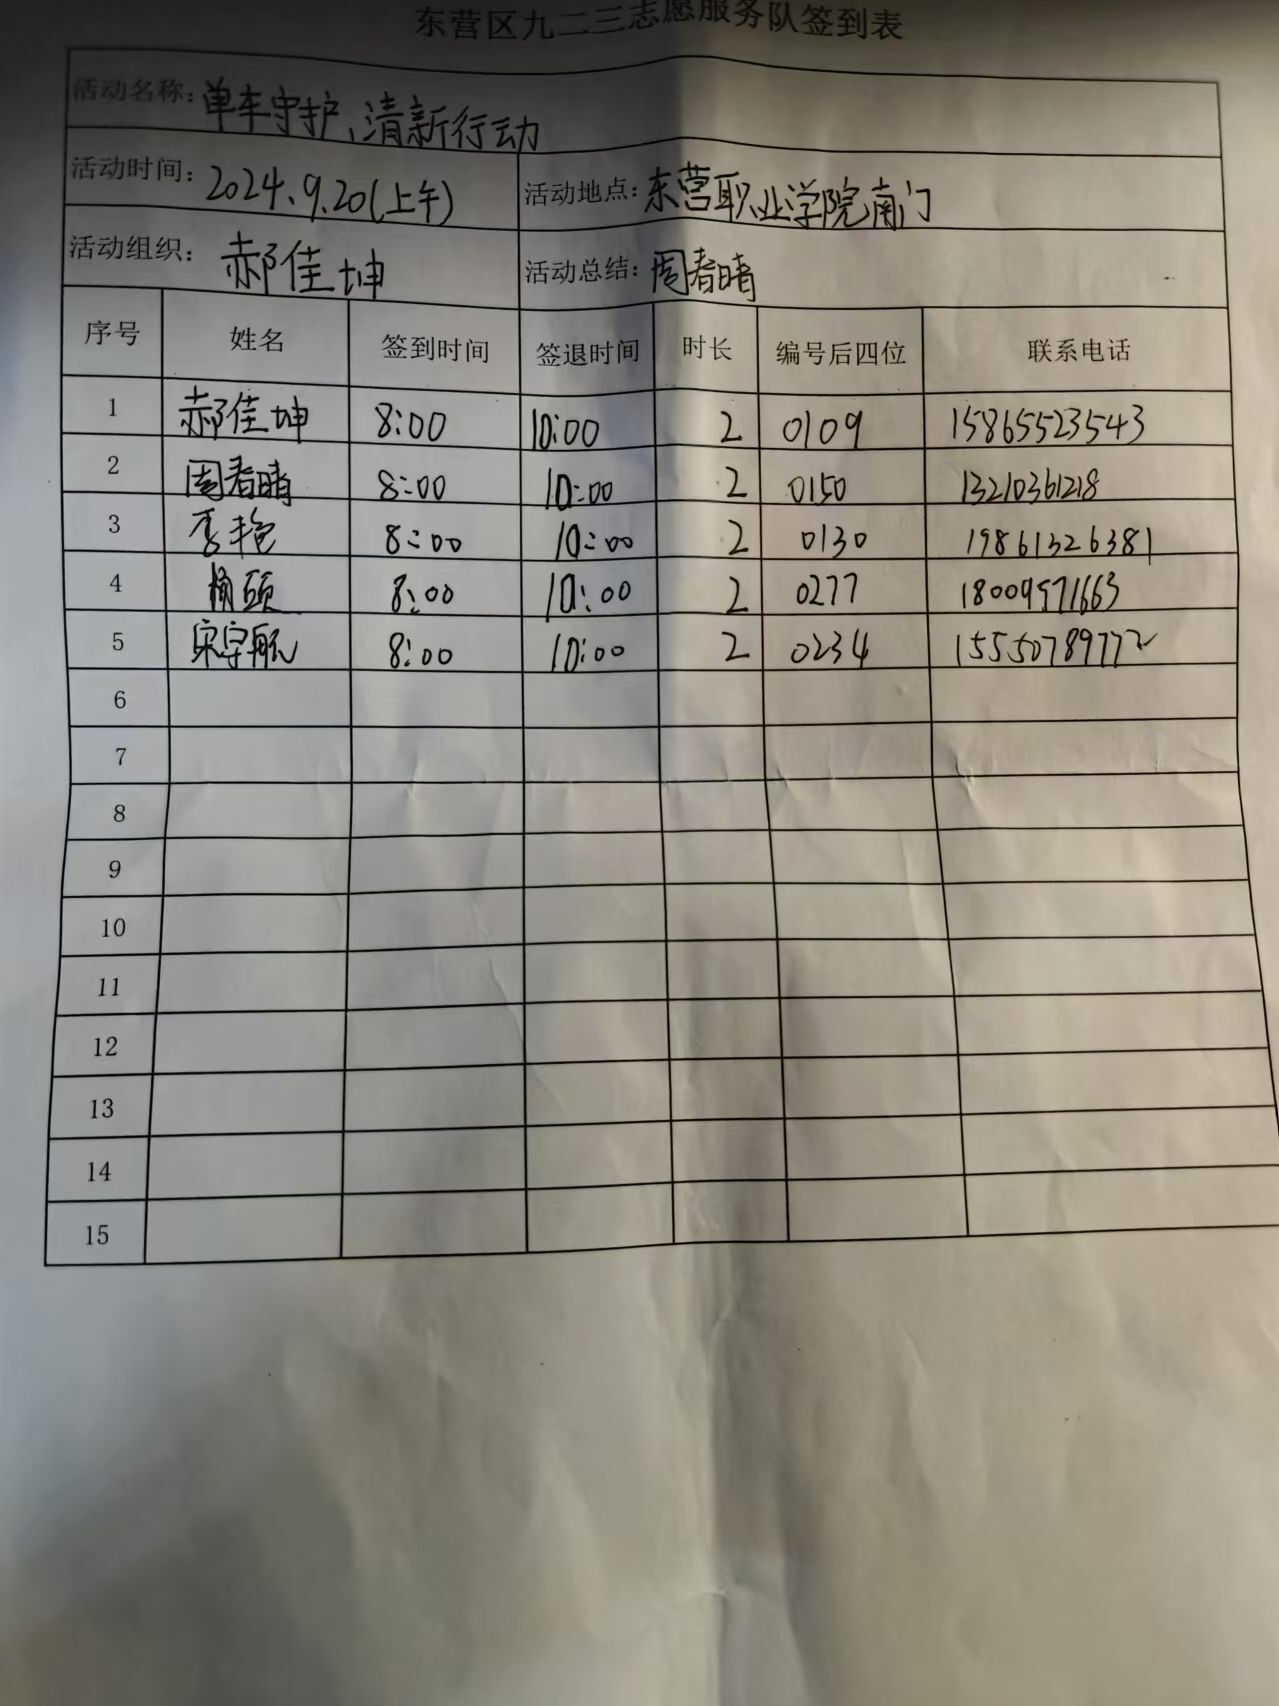 东营区九二三志愿服务队签到表
活动名称：单车守护、清新行动
活动时间：2024.9.20(上午) 活动地点：东营职业学院南门
活动组织：郝佳坤 活动总结：周春晴
序号 姓名 签到时间 签退时间 时长 编号后四位 联系电话
1 郝佳坤 8:00 10:00 2 0109 15865523543
2 周春晴 8:00 10:00 2 0150 13210361218
3 李艳 8:00 10:00 2 0130 19861326381
4 8:00 10:00 2 0277 18009571663
5 宋宇航 8:00 10:00 2 0234 15550789772
6
7
8
9
10
11
12
13
14
15